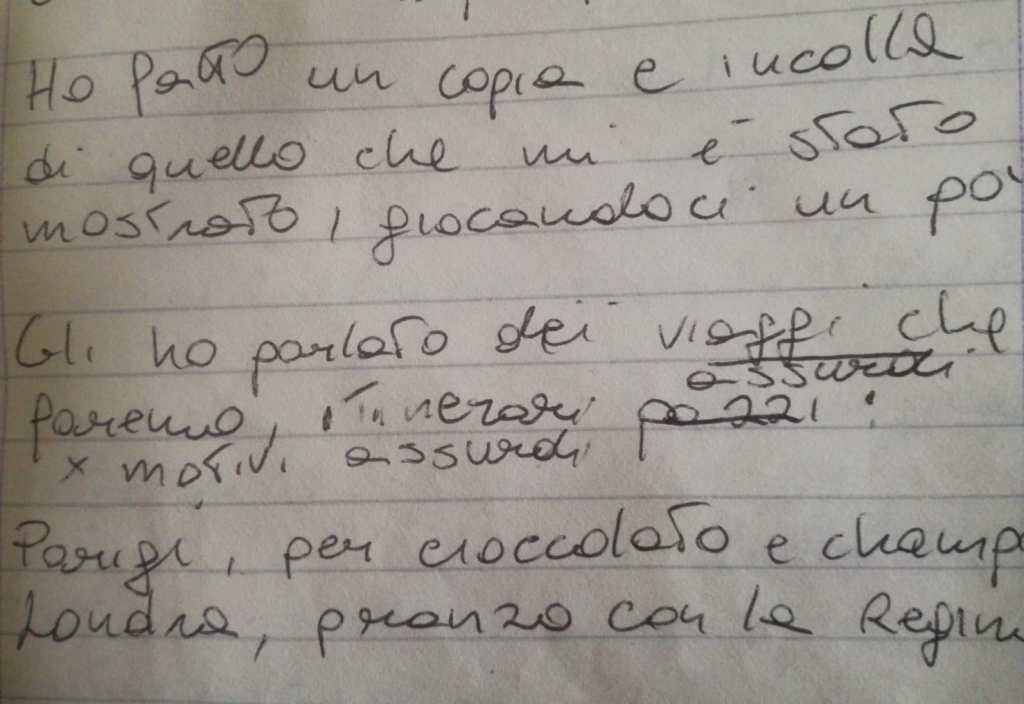 Ho fatto un copia e incolla
di quello che mi è stato
mostrato, giocandoci un po'
Gli ho parlato dei viaggi che
assurdi
faremo, itinerari pazzi :
x motivi assurdi
Parigi, per cioccolato e champ
Londra, pranzo con la Regin